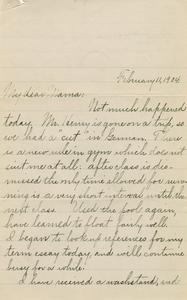 February 11, 1904
My dear Mama:
Not much happened
today. Mr. Henry is gone on a trip, so
we had a "cut" in German. There
is a new rule in gym which does not
suit me at all: after class is dis-
missed the only time allowed for swim-
ming is a very short interval until the
next class. Used the pool again,
have learned to float fairly well.
I began to looking references for my
term essay today, and we'll continue
busy for a while.
I have received a washstand, and